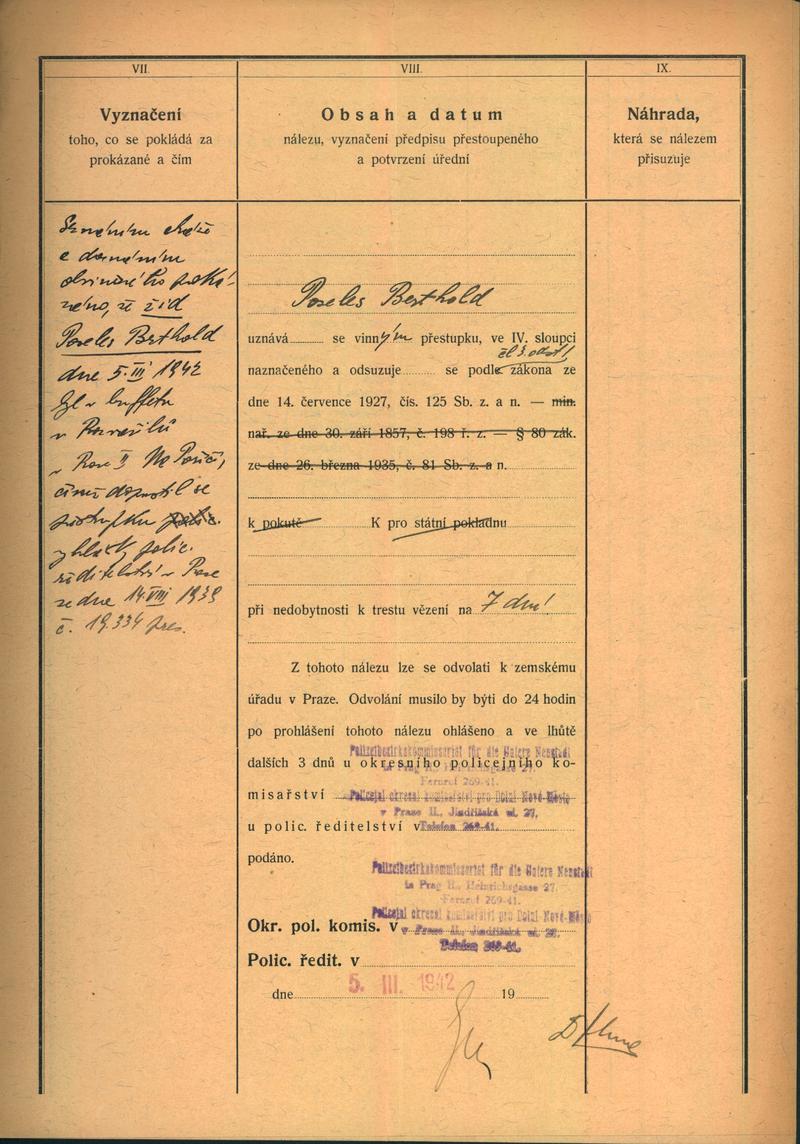 VII.
Vyznačení
toho, co se pokládá za
prokázané a čím
a doznáním
obviněného prokázáno, že žid
Poseles Berthold
dne 5. III 1942
byl v buffetu
v
v Praze II Na Poříčí,
čímž dopustil se
přestupku
vyhlášky polic.
ředitelství v Praze
ze dne 14. VIII 1939
č. 19.334 pres.
VIII.
Obsah a datum
nálezu, vyznačení předpisu přestoupeného
a potvrzení úřední
Poseles Berthold
uznává se vinným přestupku, ve IV. sloupci
čl 3. odst 1
naznačeného a odsuzuje se podle zákona ze
dne 14. července 1927, čís. 125 Sb. z. a n. — min.
nař. ze dne 30. září 1857, č. 198 ř. z. — § 80 zák.
ze dne 26. března 1935, č. 81 Sb. z. a n.
k pokutě K pro státní pokladnu
při nedobytnosti k trestu vězení na 7 dní
Z tohoto nálezu lze se odvolati k zemskému
úřadu v Praze. Odvolání musilo by býti do 24 hodin
po prohlášení tohoto nálezu ohlášeno a ve lhůtě
Polizeibezirkskommissariat für die Untere Neustadt
dalších 3 dnů u okresního policejního ko-
in Prag II., Heinrichsgasse 27.
Fernruf 269-41.
misařství Policejní okresní komisařství pro Dolní Nové Město
v Praze II., Jindřišská ul. 27.
u polic. ředitelství v Telefon 269-41.
podáno.
Polizeibezirkskommissariat für die Untere Neustadt
in Prag II., Heinrichsgasse 27.
Fernruf 269-41.
Policejní okresní komisařství pro Dolní Nové Město
Okr. pol. komis. v v Praze II., Jindřišská ul. 27.
Telefon 269-41.
Polic. ředit. v
5. III. 1942
dne 19
IX.
Náhrada,
která se nálezem
přisuzuje